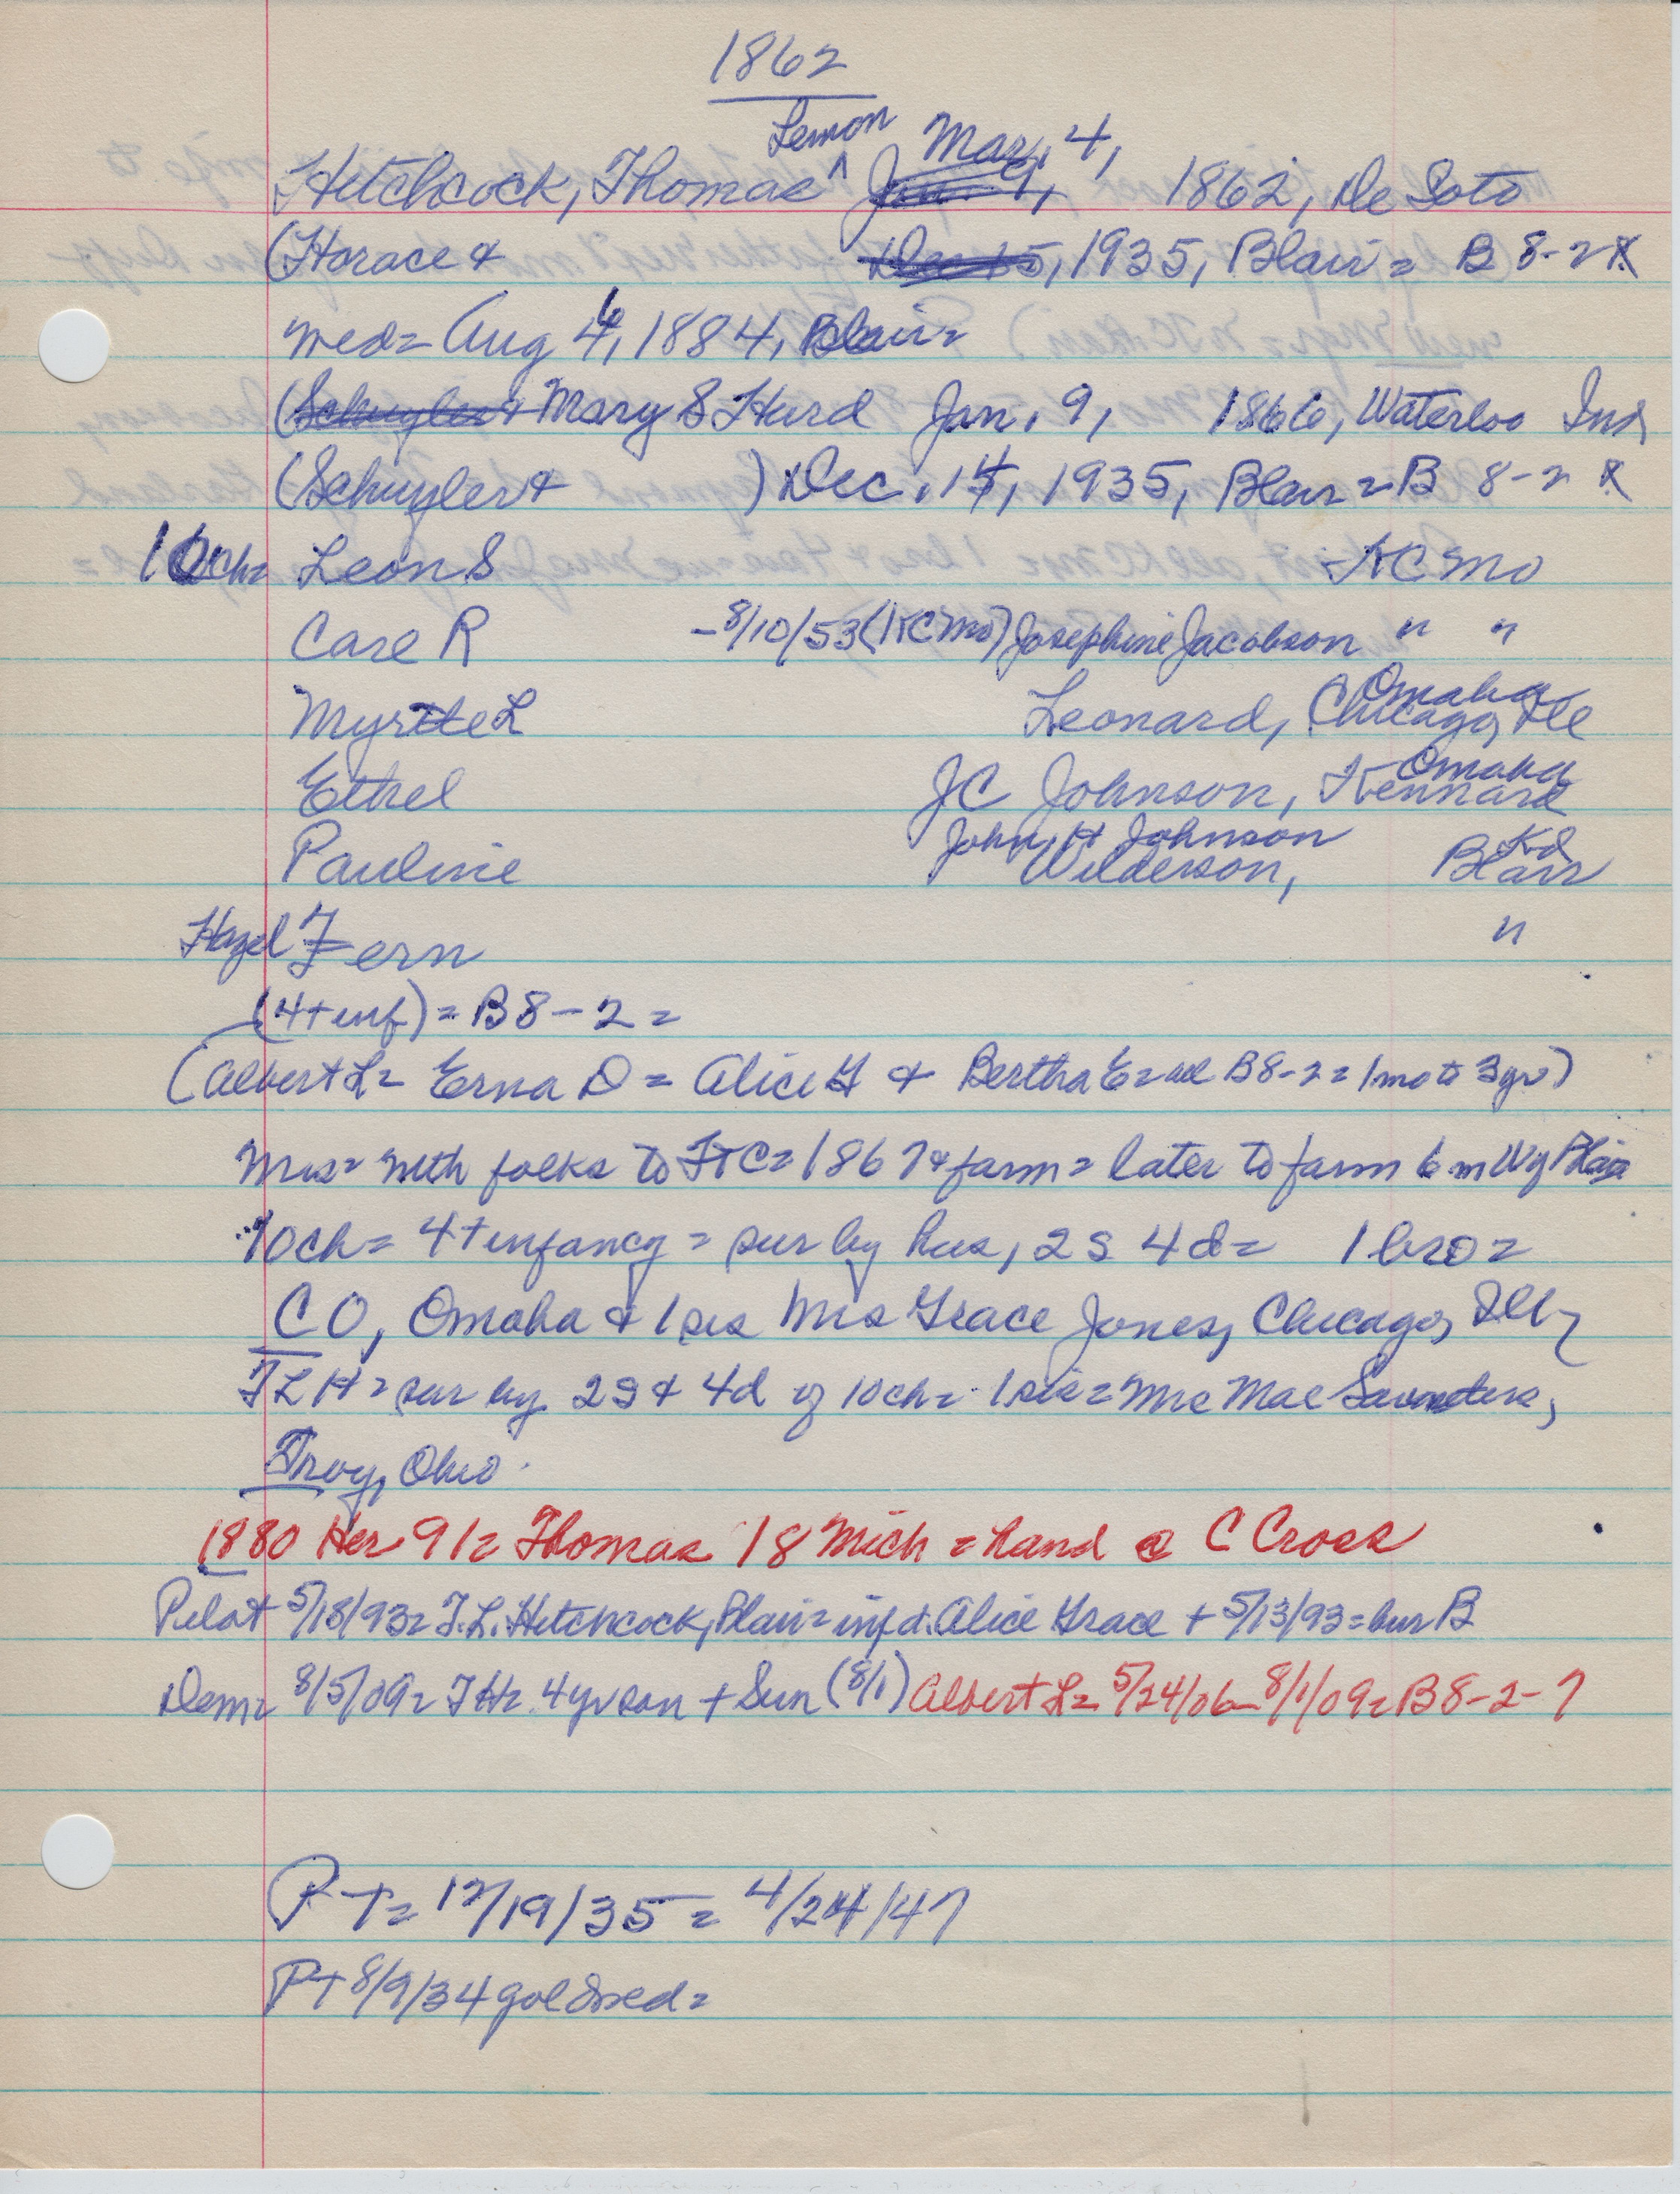 1862
Lemon Mar, 4,
Hitchcock, Thomas ^ Jan. 9, 1862, De Soto
(Horace & Dec 15, 1935, Blair = B 8-2 X
wed = Aug 6, 1884, Blair =
(Schuyler & Mary S Hurd Jan, 9, 1866, Waterloo Ind
(Schuyler & ) Dec, 14, 1935, Blair = B 8-2 X
10ch = Leon S KC Mo
Carl R - 8/10/53 (KC Mo) Josephine Jacobson " "
Omaha
Myrtle L Leonard, Chicago, Ill
Omaha
Ethel JC Johnson, Kennard
John H Johnson Kd
Pauline Wilderson, Blair
Hazel Fern "
(4 + inf) = B 8-2 =
(Albert L = Erna D = Alice G & Bertha E = all B 8-2 = 1 mo to 3 yr)
Mrs = with folks to FtC = 1867 & farm = later to farm 6 m W of Blair
10ch = 4 + infancy = sur by hus, 2s 4d = 1 bro =
CO, Omaha & 1 sis Mrs Grace Jones, Chicago, Ill,
TLH = sur by 2s & 4d of 10ch = 1 sis = Mrs Mae Saunders,
Troy, Ohio.
1880 Her 91 = Thomas 18 Mich = hand @ C Cross
Pilot 5/18/93 = T.L. Hitchcock, Blair = inf d. Alice Grace + 5/13/93 = bur B
Dem = 8/5/09 = TH = 4 yr son + Sun (8/1) Albert L = 5/24/06 - 8/1/09 = B 8-2-7
PT = 12/19/35 = 4/24/47
PT 8/9/34 gold wed =